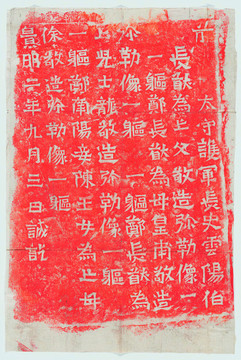 太守護軍長史雲陽伯
長猷為亡父敬造弥勒像一
一軀鄭長猷為母皇甫敬造
弥勒像一軀 一軀鄭長猷為
亡兒士龍敬造弥勒像一軀
一軀鄭南陽妾陳玉女為亡母
徐敬造弥勒像一軀
景明二年九月三日誡訖